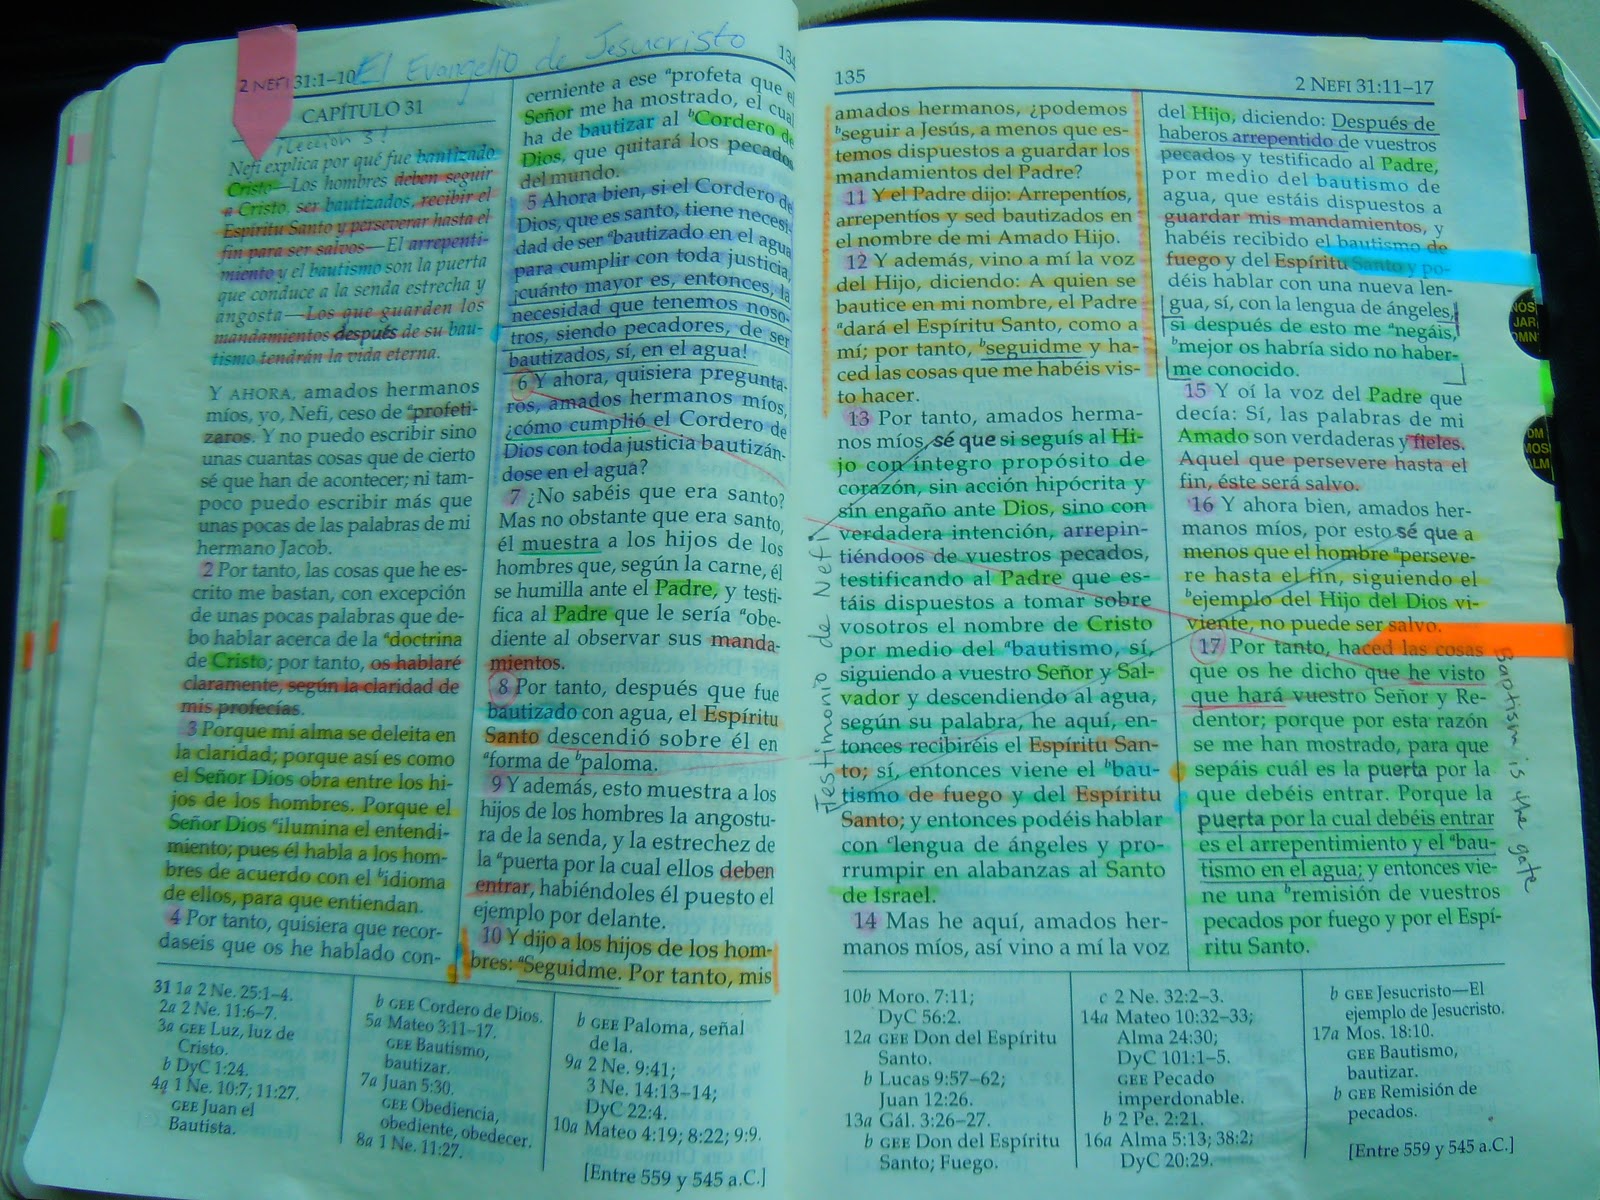 El Evangelio de Jesucristo
134
2 NEFI 31:1–10
CAPÍTULO 31
¡Lección 3!
Nefi explica por qué fue bautizado
Cristo—Los hombres deben seguir
a Cristo, ser bautizados, recibir el
Espíritu Santo y perseverar hasta el
fin para ser salvos—El arrepenti-
miento y el bautismo son la puerta
que conduce a la senda estrecha y
angosta—Los que guarden los
mandamientos después de su bau-
tismo tendrán la vida eterna.
Y AHORA, amados hermanos
míos, yo, Nefi, ceso de ªprofeti-
zaros. Y no puedo escribir sino
unas cuantas cosas que de cierto
sé que han de acontecer; ni tam-
poco puedo escribir más que
unas pocas de las palabras de mi
hermano Jacob.
2 Por tanto, las cosas que he es-
crito me bastan, con excepción
de unas pocas palabras que de-
bo hablar acerca de la ªdoctrina
de Cristo; por tanto, os hablaré
claramente, según la claridad de
mis profecías.
3 Porque mi alma se deleita en
la claridad; porque así es como
el Señor Dios obra entre los hi-
jos de los hombres. Porque el
Señor Dios ªilumina el entendi-
miento; pues él habla a los hom-
bres de acuerdo con el ᵇidioma
de ellos, para que entiendan.
4 Por tanto, quisiera que recor-
daseis que os he hablado con-
cerniente a ese ªprofeta que el
Señor me ha mostrado, el cual
ha de bautizar al ᵇCordero de
Dios, que quitará los pecados
del mundo.
5 Ahora bien, si el Cordero de
Dios, que es santo, tiene necesi-
dad de ser ªbautizado en el agua
para cumplir con toda justicia,
¡cuánto mayor es, entonces, la
necesidad que tenemos noso-
tros, siendo pecadores, de ser
bautizados, sí, en el agua!
6 Y ahora, quisiera pregunta-
ros, amados hermanos míos,
¿cómo cumplió el Cordero de
Dios con toda justicia bautizán-
dose en el agua?
7 ¿No sabéis que era santo?
Mas no obstante que era santo,
él muestra a los hijos de los
hombres que, según la carne, él
se humilla ante el Padre, y testi-
fica al Padre que le sería ªobe-
diente al observar sus manda-
mientos.
8 Por tanto, después que fue
bautizado con agua, el Espíritu
Santo descendió sobre él en
ªforma de ᵇpaloma.
9 Y además, esto muestra a los
hijos de los hombres la angostu-
ra de la senda, y la estrechez de
la ªpuerta por la cual ellos deben
entrar, habiéndoles él puesto el
ejemplo por delante.
10 Y dijo a los hijos de los hom-
bres: ªSeguidme. Por tanto, mis
31 1a 2 Ne. 25:1–4.
2a 2 Ne. 11:6–7.
3a GEE Luz, luz de
Cristo.
b DyC 1:24.
4a 1 Ne. 10:7; 11:27.
GEE Juan el
Bautista.
b GEE Cordero de Dios.
5a Mateo 3:11–17.
GEE Bautismo,
bautizar.
7a Juan 5:30.
GEE Obediencia,
obediente, obedecer.
8a 1 Ne. 11:27.
b GEE Paloma, señal
de la.
9a 2 Ne. 9:41;
3 Ne. 14:13–14;
DyC 22:4.
10a Mateo 4:19; 8:22; 9:9.
[Entre 559 y 545 a.C.]
135
2 NEFI 31:11–17
amados hermanos, ¿podemos
ᵇseguir a Jesús, a menos que es-
temos dispuestos a guardar los
mandamientos del Padre?
11 Y el Padre dijo: Arrepentíos,
arrepentíos y sed bautizados en
el nombre de mi Amado Hijo.
12 Y además, vino a mí la voz
del Hijo, diciendo: A quien se
bautice en mi nombre, el Padre
ªdará el Espíritu Santo, como a
mí; por tanto, ᵇseguidme y ha-
ced las cosas que me habéis vis-
to hacer.
13 Por tanto, amados herma-
nos míos, sé que si seguís al Hi-
jo con íntegro propósito de
corazón, sin acción hipócrita y
sin engaño ante Dios, sino con
verdadera intención, arrepin-
tiéndoos de vuestros pecados,
testificando al Padre que es-
táis dispuestos a tomar sobre
vosotros el nombre de Cristo
por medio del ªbautismo, sí,
siguiendo a vuestro Señor y Sal-
vador y descendiendo al agua,
según su palabra, he aquí, en-
tonces recibiréis el Espíritu San-
to; sí, entonces viene el ᵇbau-
tismo de fuego y del Espíritu
Santo; y entonces podéis hablar
con ᶜlengua de ángeles y pro-
rrumpir en alabanzas al Santo
de Israel.
14 Mas he aquí, amados her-
manos míos, así vino a mí la voz
Testimonio de Nefi
del Hijo, diciendo: Después de
haberos arrepentido de vuestros
pecados y testificado al Padre,
por medio del bautismo de
agua, que estáis dispuestos a
guardar mis mandamientos, y
habéis recibido el bautismo de
fuego y del Espíritu Santo y po-
déis hablar con una nueva len-
gua, sí, con la lengua de ángeles,
si después de esto me ªnegáis,
ᵇmejor os habría sido no haber-
me conocido.
15 Y oí la voz del Padre que
decía: Sí, las palabras de mi
Amado son verdaderas y fieles.
Aquel que persevere hasta el
fin, éste será salvo.
16 Y ahora bien, amados her-
manos míos, por esto sé que a
menos que el hombre ªperseve-
re hasta el fin, siguiendo el
ᵇejemplo del Hijo del Dios vi-
viente, no puede ser salvo.
17 Por tanto, haced las cosas
que os he dicho que he visto
que hará vuestro Señor y Re-
dentor; porque por esta razón
se me han mostrado, para que
sepáis cuál es la puerta por la
que debéis entrar. Porque la
puerta por la cual debéis entrar
es el arrepentimiento y el ªbau-
tismo en el agua; y entonces vie-
ne una ᵇremisión de vuestros
pecados por fuego y por el Espí-
ritu Santo.
Baptism is the gate
10b Moro. 7:11;
DyC 56:2.
12a GEE Don del Espíritu
Santo.
b Lucas 9:57–62;
Juan 12:26.
13a Gál. 3:26–27.
b GEE Don del Espíritu
Santo; Fuego.
c 2 Ne. 32:2–3.
14a Mateo 10:32–33;
Alma 24:30;
DyC 101:1–5.
GEE Pecado
imperdonable.
b 2 Pe. 2:21.
16a Alma 5:13; 38:2;
DyC 20:29.
b GEE Jesucristo—El
ejemplo de Jesucristo.
17a Mos. 18:10.
GEE Bautismo,
bautizar.
b GEE Remisión de
pecados.
[Entre 559 y 545 a.C.]
NÓS
JAR
OMNI
MOS
ALM